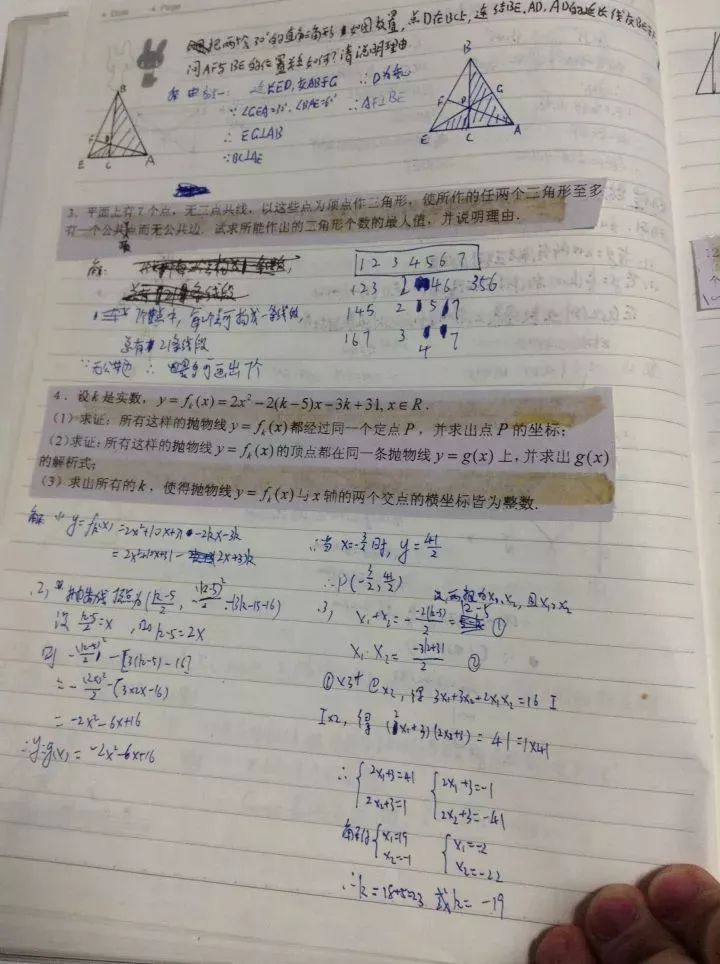 把两个30°的直角三角形如图放置，点D在BC上，连结BE、AD，AD的延长线交BE于
问AF与BE的位置关系如何？请说明理由
连ED，交AB于G ∴D为
∴∠GEA=30°，∠BAE=60° ∴AF⊥BE
∴EG⊥AB
∵BC⊥AE
B
F
D
E
C
A
B
G
F
D
E
C
A
3．平面上有7个点，无三点共线，以这些点为顶点作三角形，使所作的任两个三角形至多
有一个公共顶点而无公共边．试求所能作出的三角形个数的最大值，并说明理由．
解：
1 2 3 4 5 6 7
123 2 46 356
145 2 5 7
167 3 4 7
7个点中，每2个点可构成一条线段，
总有21条线段
∵无公共边 ∴ 可画出7个
4．设k是实数，y=f_k(x)=2x²-2(k-5)x-3k+31,x∈R．
（1）求证：所有这样的抛物线y=f_k(x)都经过同一个定点P，并求出点P的坐标；
（2）求证：所有这样的抛物线y=f_k(x)的顶点都在同一条抛物线y=g(x)上，并求出g(x)
的解析式；
（3）求出所有的k，使得抛物线y=f_k(x)与x轴的两个交点的横坐标皆为整数．
解 y=f_k(x)=2x²+10x+31-2kx-3k
∴当x=-3/2时，y=41/2
∴P(-3/2, 41/2)
2,
抛物线顶点为(k-5/2, -(k-5)²/2-(3k-15-16)
设k-5/2=x，则k-5=2x
则 -(k-5)²/2-[3(k-5)-16]
=-(2x)²/2-(3×2x-16)
=-2x²-6x+16
∴y=g(x)=-2x²-6x+16
3, 设两根为x₁,x₂，且x₁>x₂
x₁+x₂=--2(k-5)/2=k-5 ①
x₁·x₂=-3k+31/2 ②
①×3+②×2，得 3x₁+3x₂+2x₁x₂=16 I
I×2，得 (2x₁+3)(2x₂+3)=41=1×41
∴{2x₁+3=41 {2x₁+3=-1
2x₂+3=1 2x₂+3=-41
解得{x₁=19 {x₁=-2
x₂=-1 x₂=-22
∴k=18+5=23 或k=-19